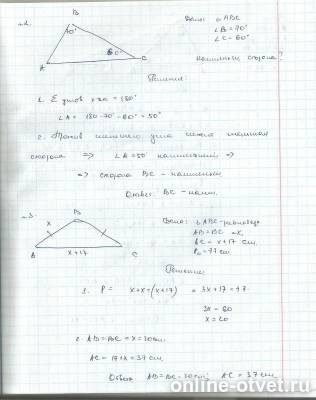 №2.
B
70°
60°
A
C
Дано: △ABC
∠B = 70°
∠C = 60°
наименьш. сторона?
Решение:
1. Σ углов = 180°
∠A = 180-70°-60° = 50°
2. Против меньшего угла лежит меньшая
сторона => ∠A=50° наименьший =>
=> сторона BC - наименьш.
Ответ: BC - наим.
№3.
B
x
A
C
x+17
Дано: △ABC-равнобедр
AB=BC
AC = x+17 см.
P = 77 см
Решение
1. P = x+x+(x+17) = 3x+17=77
3x = 60
x = 20
2. AB=BC=x=20см
AC = 17+x=37см
Ответ AB=BC=20см; AC=37см
online-otvet.ru